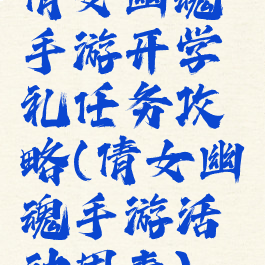 倩女幽魂
手游开学
礼任务攻
略(倩女幽
魂手游活